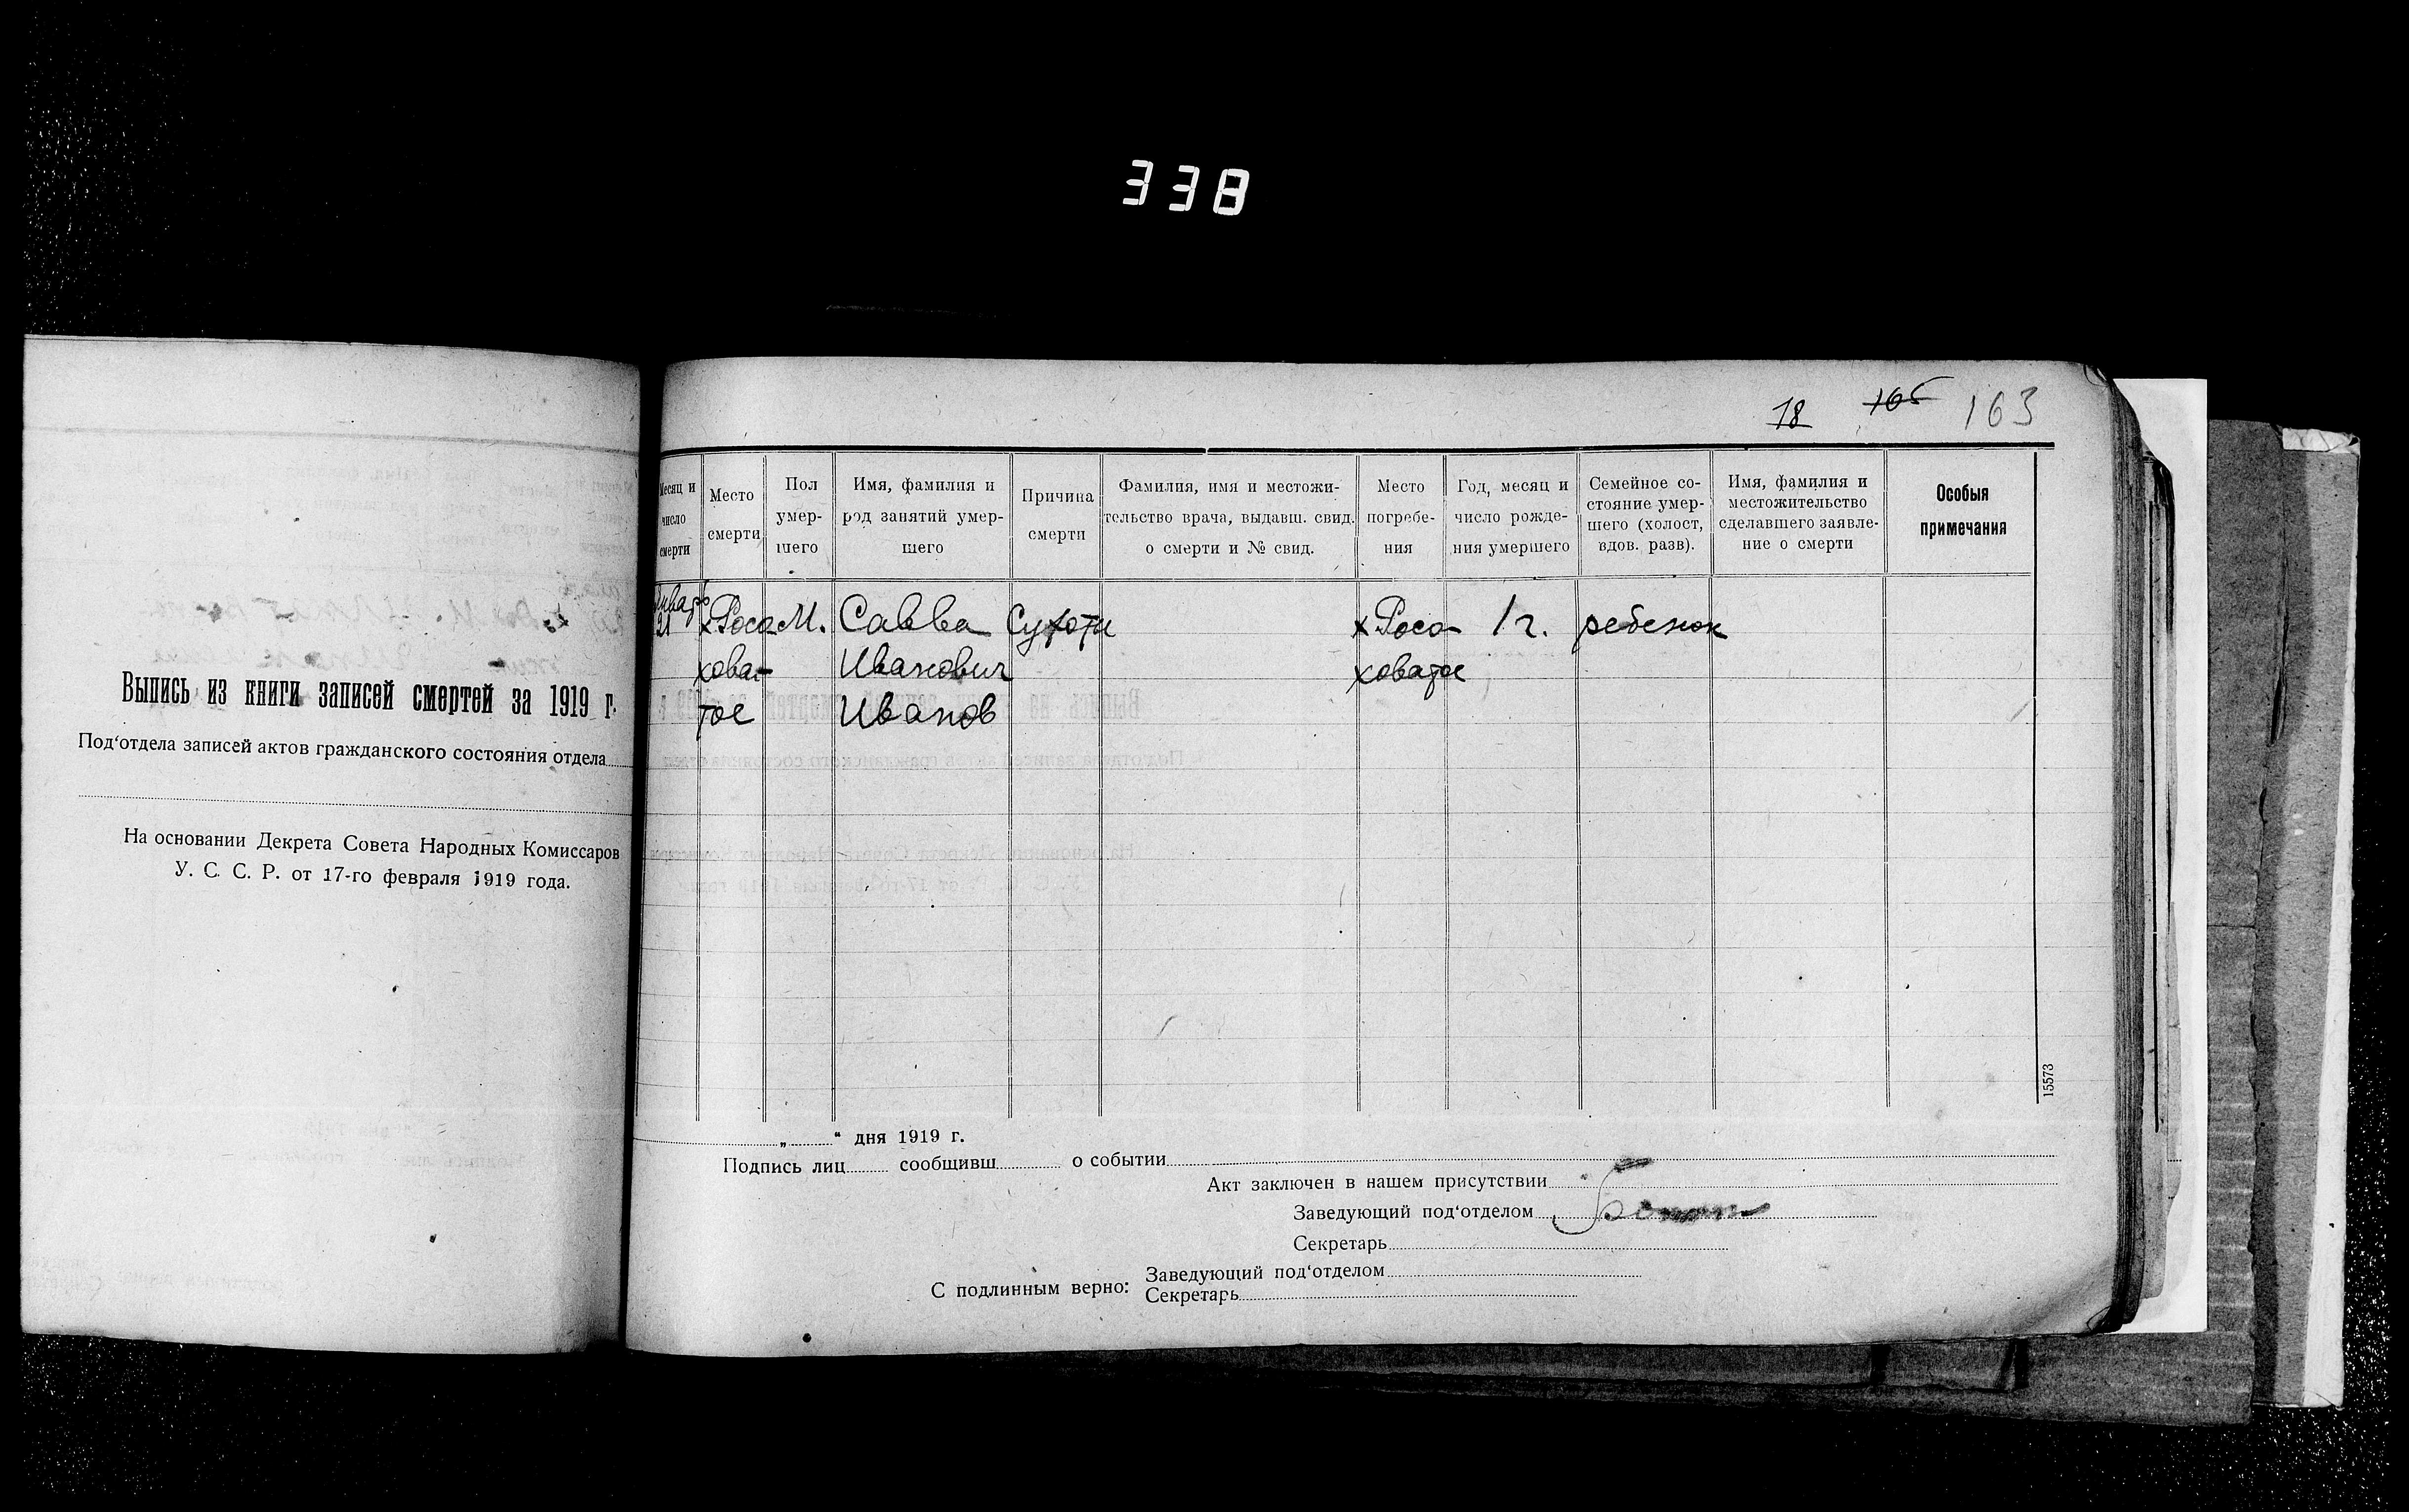 338
18 105 163
Выпись из книги записей смертей за 1919 г.
Под‘отдела записей актов гражданского состояния отдела
На основании Декрета Совета Народных Комиссаров
У. С. С. Р. от 17-го февраля 1919 года.
Месяц и число смерти
Место смерти
Пол умер-
шего
Имя, фамилия и
род занятий умер-
шего
Причина
смерти
Фамилия, имя и местожи-
тельство врача, выдавш. свид.
о смерти и № свид.
Место
погребе-
ния
Год, месяц и
число рожде-
ния умершего
Семейное со-
стояние умер-
шего (холост,
вдов. разв).
Имя, фамилия и
местожительство
сделавшего заявле-
ние о смерти
Особыя
примечания
Январь
21
х. Росо
ховат-
тое
М.
Савва
Иванович
Иванов
Сухоти
х Росо-
ховатое
1 г.
ребенок
15573
„ “ дня 1919 г.
Подпись лиц сообщивш о событии
Акт заключен в нашем присутствии
Заведующий под‘отделом
Секретарь
С подлинным верно:
Заведующий под‘отделом
Секретарь